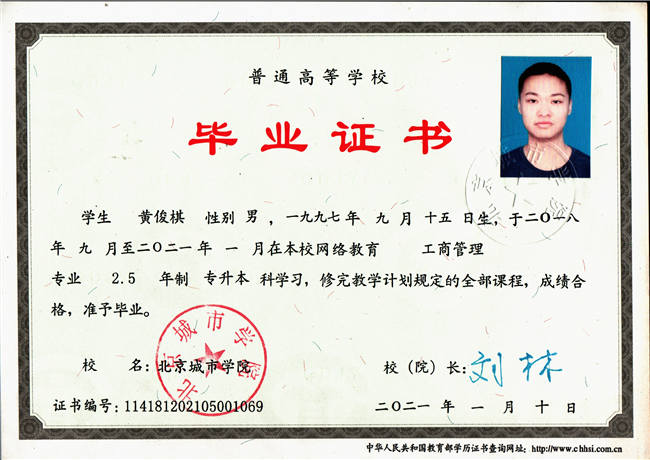 普通高等学校
毕业证书
学生 黄俊棋 性别 男 ，一九九七 年 九 月 十五 日生，于二〇一八
年 九 月至二〇二一年 一 月在本校网络教育 工商管理
专业 2.5 年制 专升本 科学习，修完教学计划规定的全部课程，成绩合
格，准予毕业。
北京城市学院
校 名：北京城市学院 校（院）长：刘林
证书编号：114181202105001069 二〇二一 年 一 月 十 日
中华人民共和国教育部学历证书查询网址：http://www.chsi.com.cn